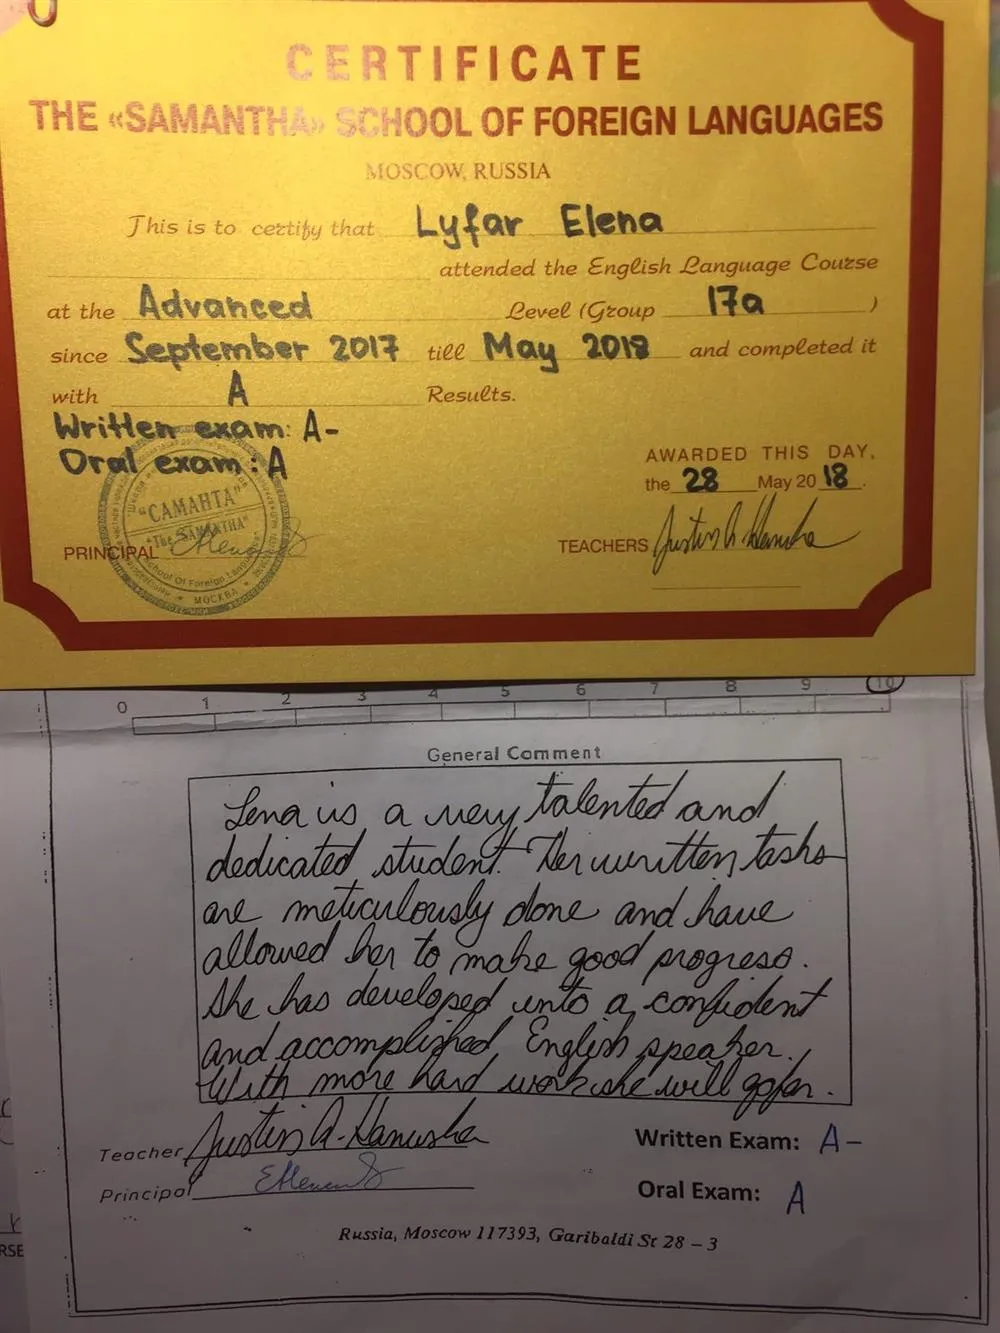 CERTIFICATE
THE «SAMANTHA» SCHOOL OF FOREIGN LANGUAGES
MOSCOW, RUSSIA
This is to certify that Lyfar Elena
attended the English Language Course
at the Advanced Level (Group 17a )
since September 2017 till May 2018 and completed it
with A Results.
Written exam: A-
Oral exam: A
AWARDED THIS DAY,
the 28 May 2018.
"САМАНТА"
"The SAMANTHA"
School Of Foreign Languages
МОСКВА
PRINCIPAL
TEACHERS Justin A. Hanusha
0 1 2 3 4 5 6 7 8 9 10
General Comment
Lena is a very talented and
dedicated student. Her written tasks
are meticulously done and have
allowed her to make good progress.
She has developed into a confident
and accomplished English speaker.
With more hard work she will go far.
Teacher Justin A. Hanusha
Written Exam: A-
Principal
Oral Exam: A
Russia, Moscow 117393, Garibaldi St 28 – 3
RSE